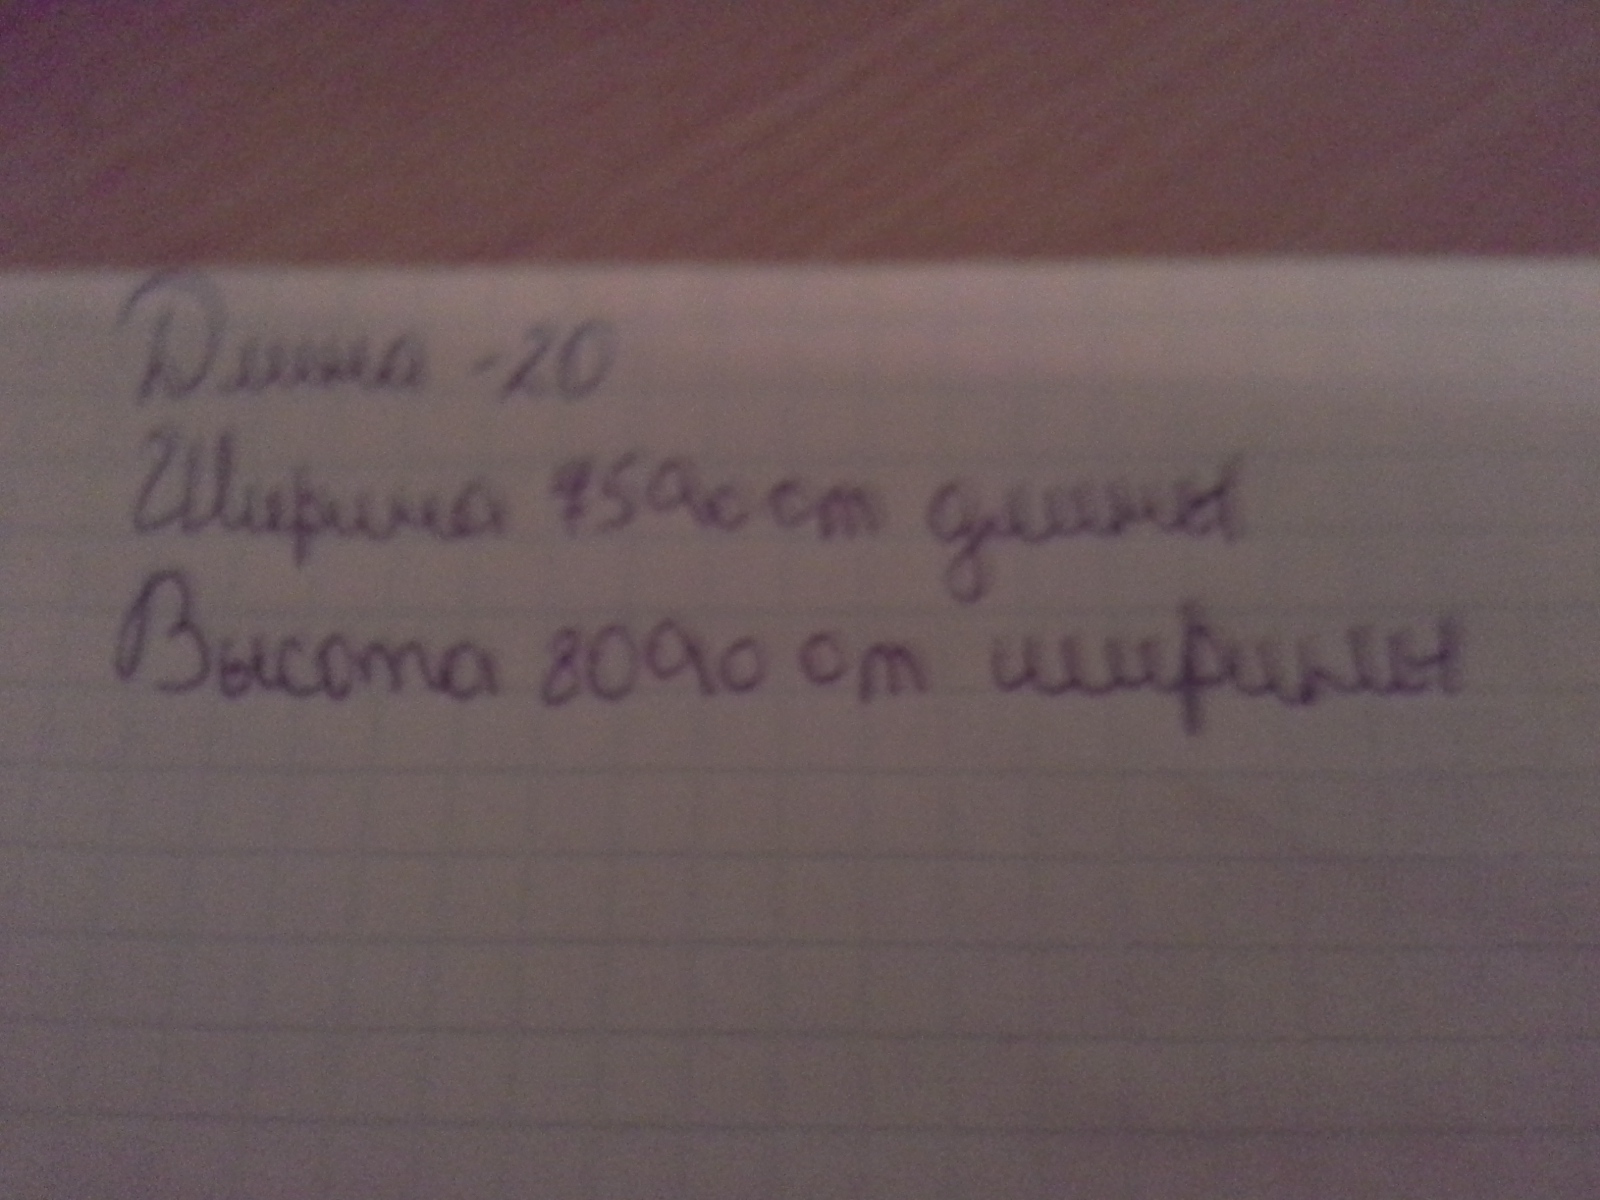 Длина - 20
Ширина 75% от длины
Высота 80% от ширины